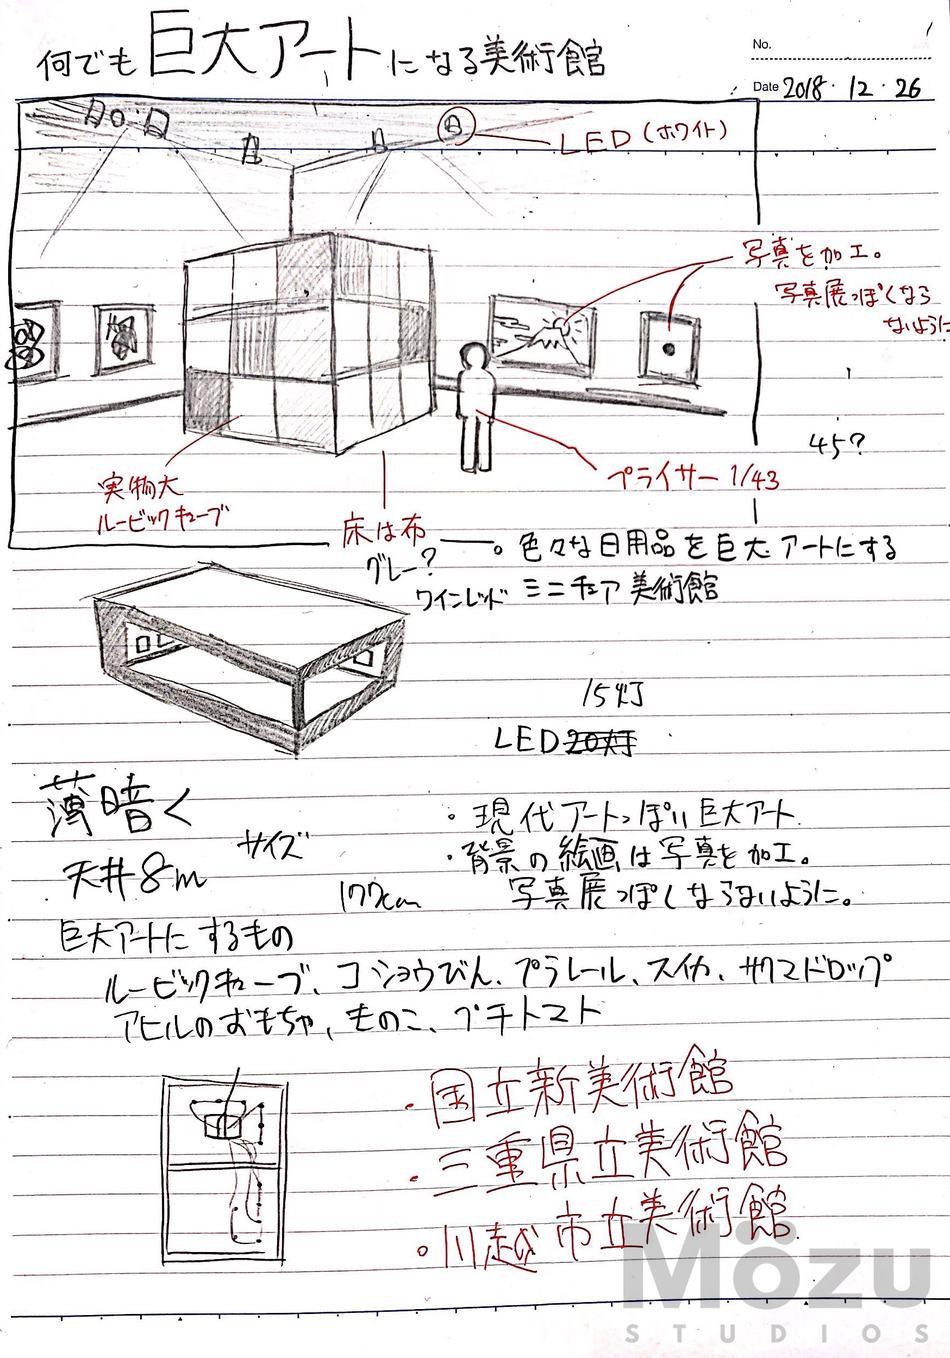 何でも巨大アートになる美術館
No.
Date 2018・12・26
LED(ホワイト)
写真を加工。
写真展っぽくなら
ないように
45?
プライザー 1/43
実物大
ルービックキューブ
床は布
グレー?
ワインレッド
。色々な日用品を巨大アートにする
ミニチュア美術館
15灯
LED20灯
薄暗く
サイズ
天井8m
177cm
・現代アートっぽい巨大アート
・背景の絵画は写真を加工。
写真展っぽくならないように。
巨大アートにするもの
ルービックキューブ、コショウびん、プラレール、スイカ、サクマドロップ
アヒルのおもちゃ、きのこ、プチトマト
・国立新美術館
・三重県立美術館
・川越市立美術館
Mözu
STUDIOS